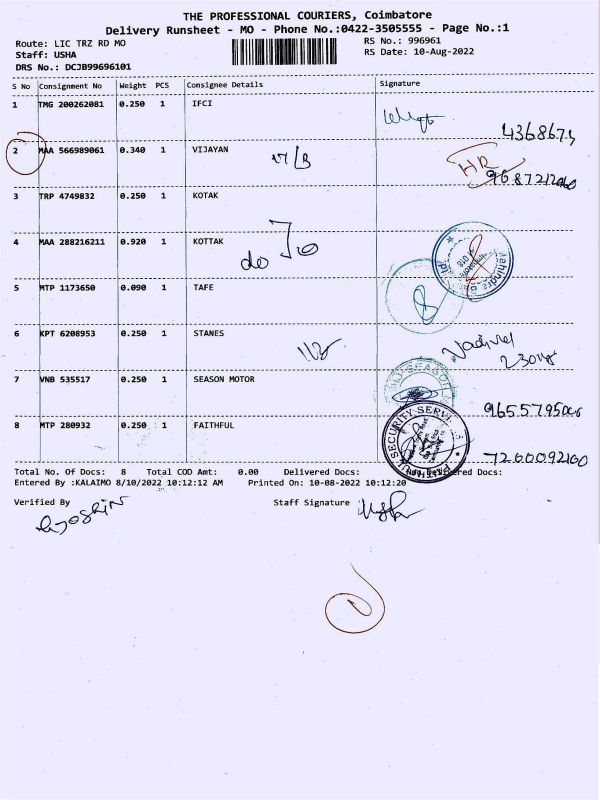 THE PROFESSIONAL COURIERS, Coimbatore
Delivery Runsheet - MO - Phone No.:0422-3505555 - Page No.:1
Route: LIC TRZ RD MO RS No.: 996961
Staff: USHA RS Date: 10-Aug-2022
DRS No.: DCJB99696101
S No Consignment No Weight PCS Consignee Details Signature
1 TMG 200262081 0.250 1 IFCI
2 MAA 566989061 0.340 1 VIJAYAN
HR
3 TRP 4749832 0.250 1 KOTAK
4 MAA 288216211 0.920 1 KOTTAK
do
5 MTP 1173650 0.090 1 TAFE
6 KPT 6208953 0.250 1 STANES
7 VNB 535517 0.250 1 SEASON MOTOR
8 MTP 280932 0.250 1 FAITHFUL
7260092100
Total No. Of Docs: 8 Total COD Amt: 0.00 Delivered Docs: Docs:
Entered By :KALAIMO 8/10/2022 10:12:12 AM Printed On: 10-08-2022 10:12:20
Verified By Staff Signature